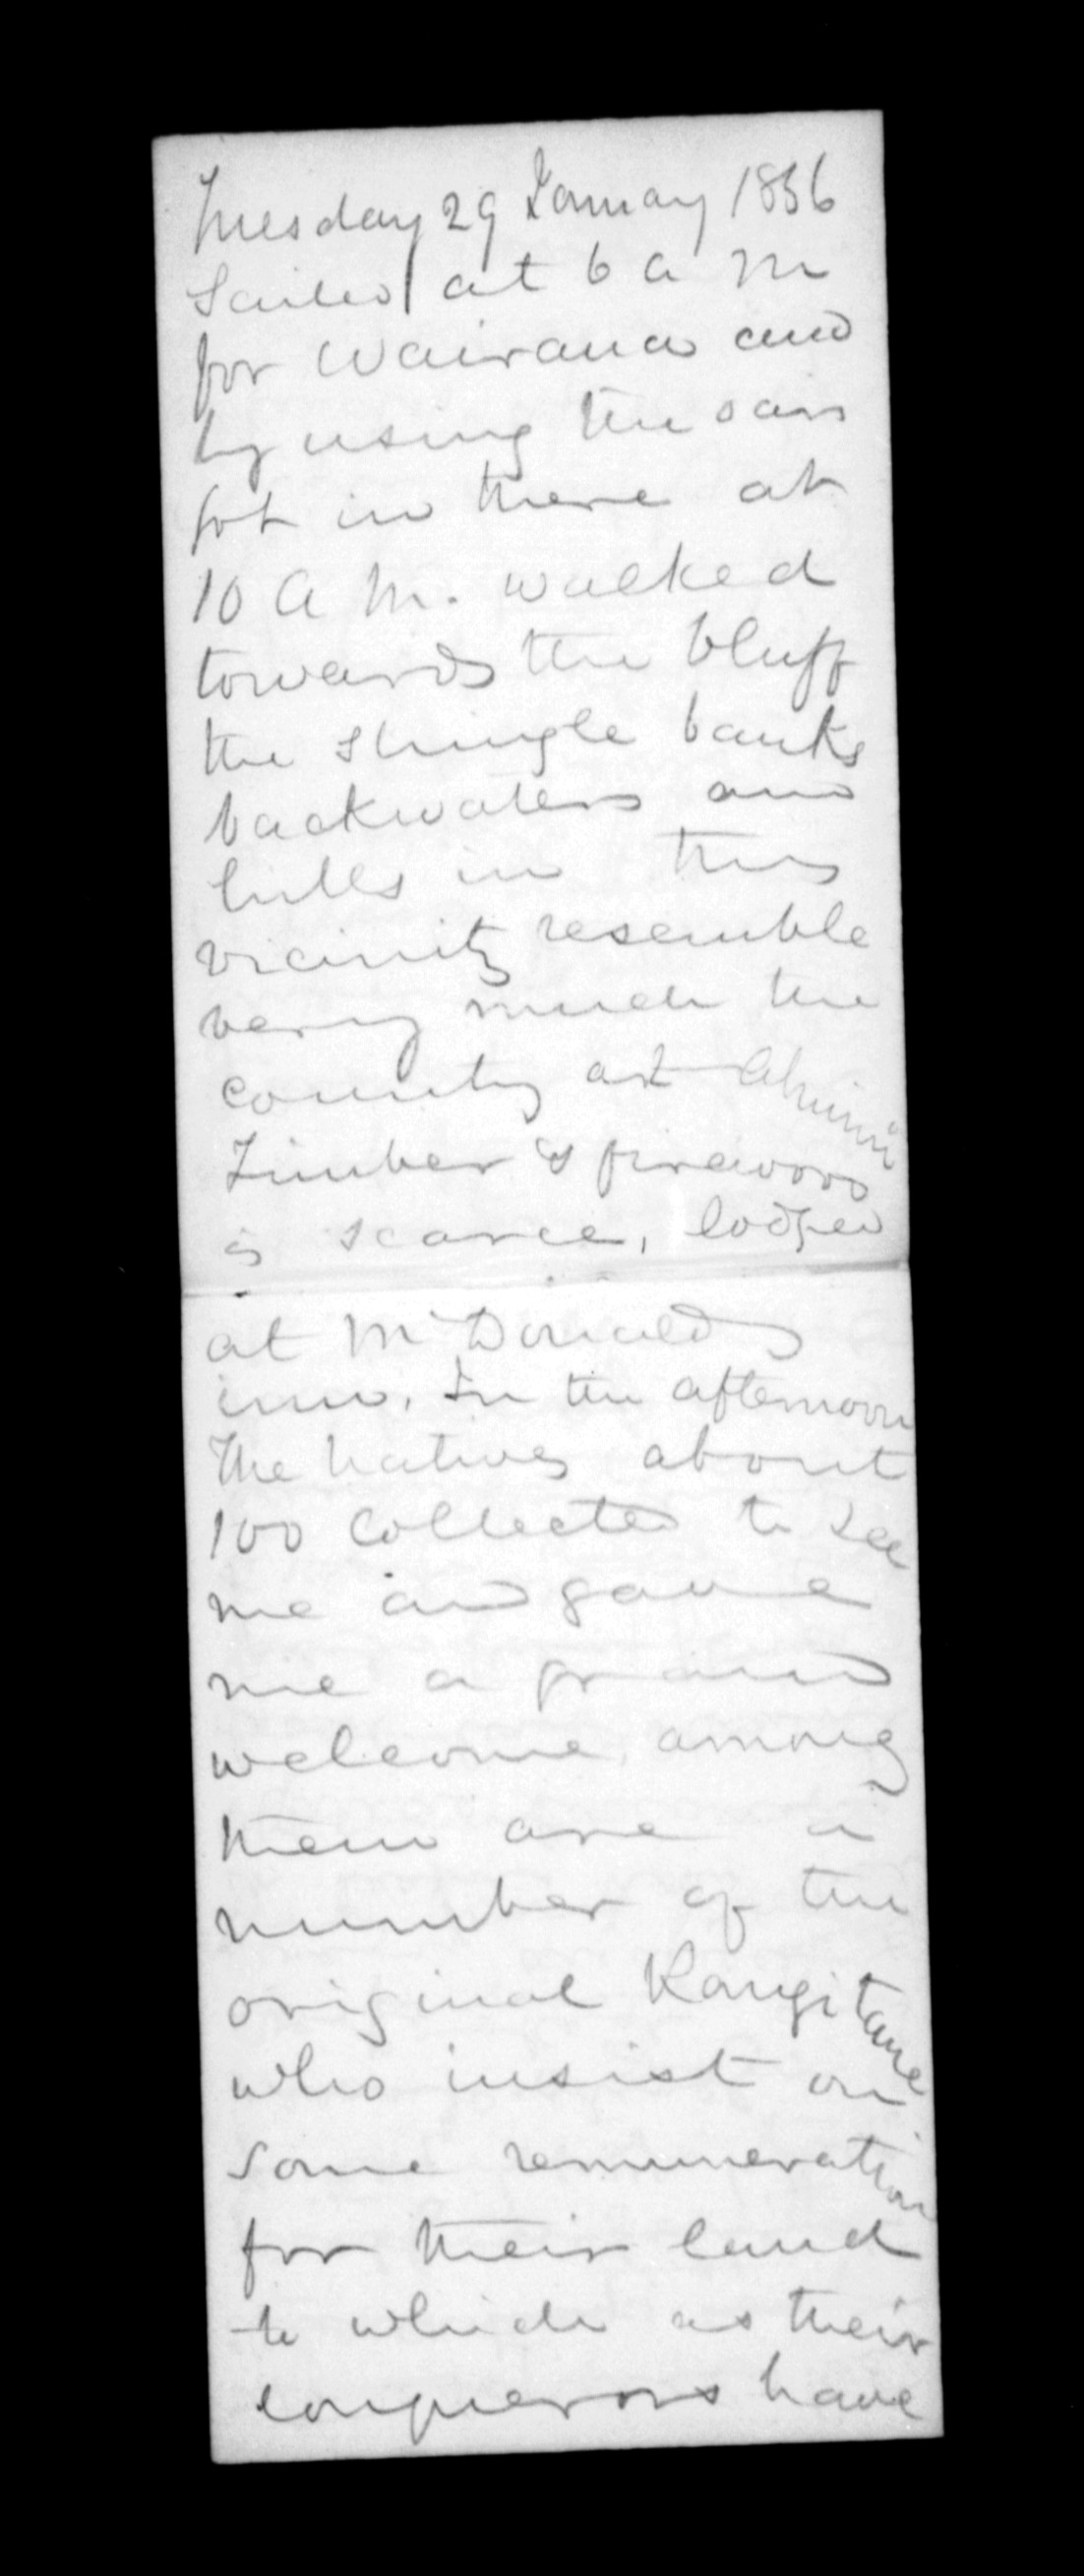 Tuesday 29 January 1856
Sailed at 6 a m
for Wairaua and
by using the oars
got in there at
10 a m. walked
towards the bluff
the shingle banks
backwaters and
hills in this
vicinity resemble
very much the
country at Ahuriri
Timber & firewood
is scarce, lodged
at McDonalds
inn. In the afternoon
the natives about
100 collected to see
me and gave
me a grand
welcome among
them are a
number of the
original Rangitane
who insist on
some remuneration
for their land
to which as their
conquerors have